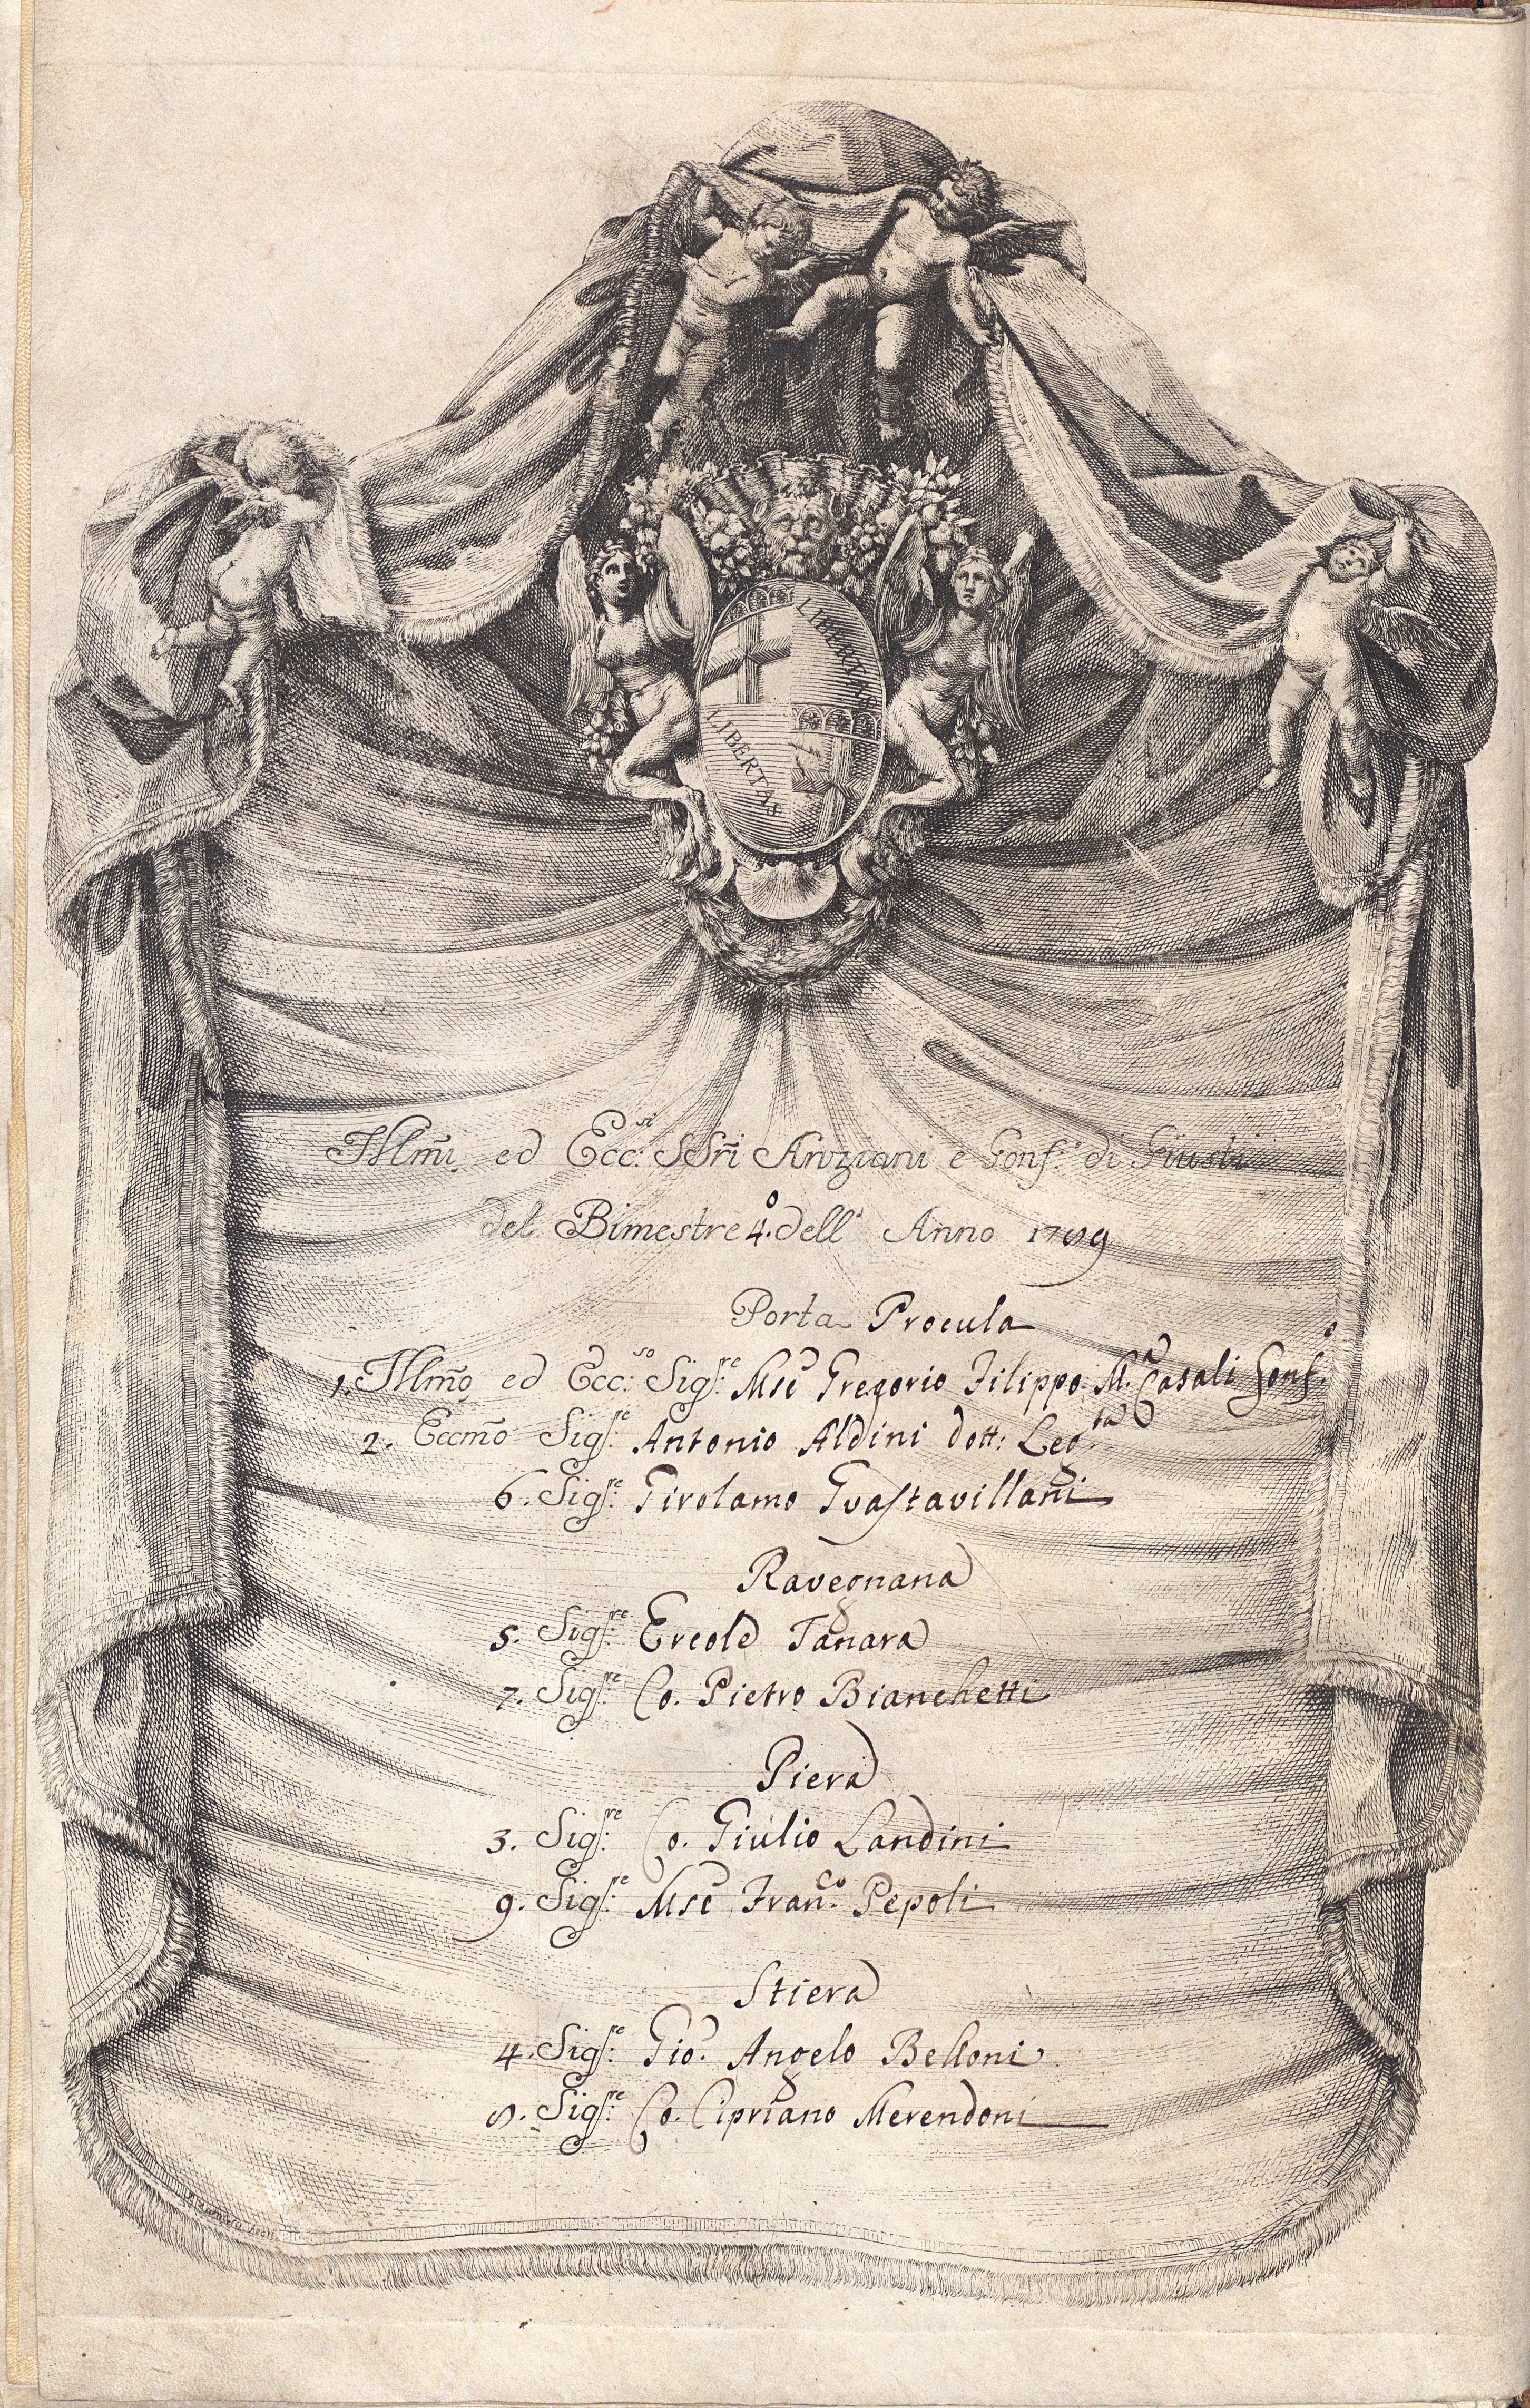 LIBERTAS
LIBERTAS
Illm̃i ed Ecc:si SSri Anziani e Gonf.e di Giusti
del Bimestre 4.o dell' Anno 1789
Porta Procula
1. Illm̃o ed Ecc:so Sigr:re Mse Gregorio Filippo M.a Casali Gonf.e
2. Eccm̃o Sig:re Antonio Aldini dott: Leg:ta
6. Sig:re Girolamo Guastavillani
Ravegnana
5. Sig:re Ercole Tanara
7. Sig:re Co. Pietro Bianchetti
Piera
3. Sig:re Co. Giulio Landini
9. Sig:re Mse Fran:co Pepoli
Stiera
4. Sig:re Gio. Angelo Belloni
8. Sig:re Co. Cipriano Merendoni